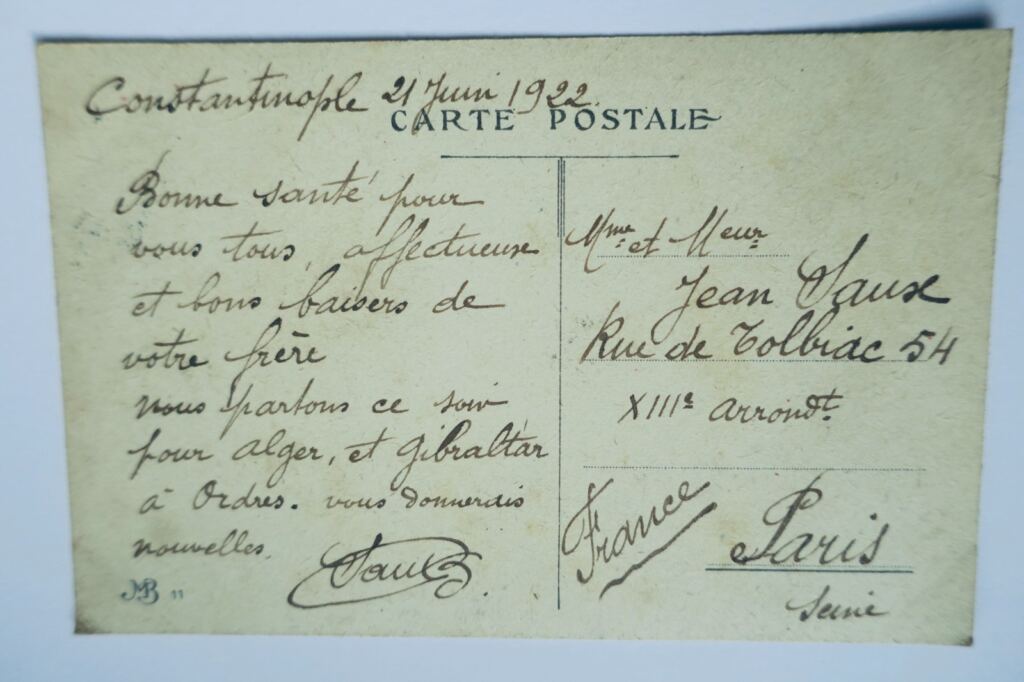 Constantinople 21 Juin 1922.
CARTE POSTALE
Bonne santé pour
vous tous, affectueuse
et bons baisers de
votre frère
nous partons ce soir
pour Alger, et Gibraltar
à Ordres. vous donnerais
nouvelles.
Saux
MB 11
Mme et Meur
Jean Saux
Rue de Tolbiac 54
XIIIe Arrondt.
France
Paris
Seine